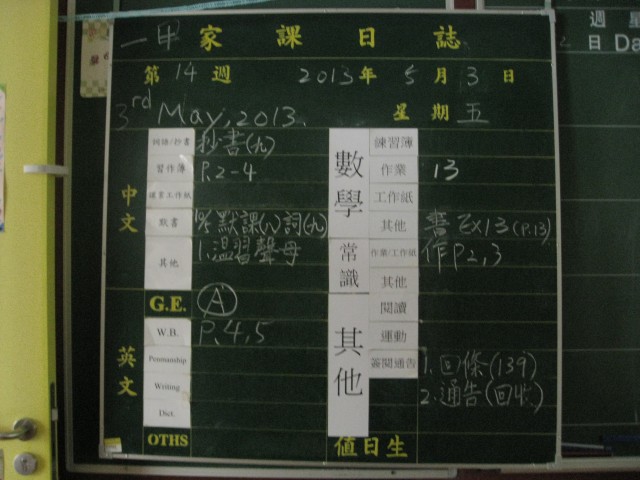 一甲家課日誌
第14週 2013年5月3日
3rd May, 2013. 星期五
中文
詞語/抄書 抄書(九)
習作簿 P.2-4
默書 默課(八)詞(九)
其他 1.温習聲母
英文
G.E. A
W.B. P.4,5
Penmanship
Writing
Dict.
OTHS
數學
練習簿
作業 13
工作紙
其他 書Ex13(P.13)
常識
作業/工作紙 作P2,3
其他
其他
閱讀
運動
簽閱通告 1.回條(139)
2.通告(回收)
值日生
週
星
日 Da